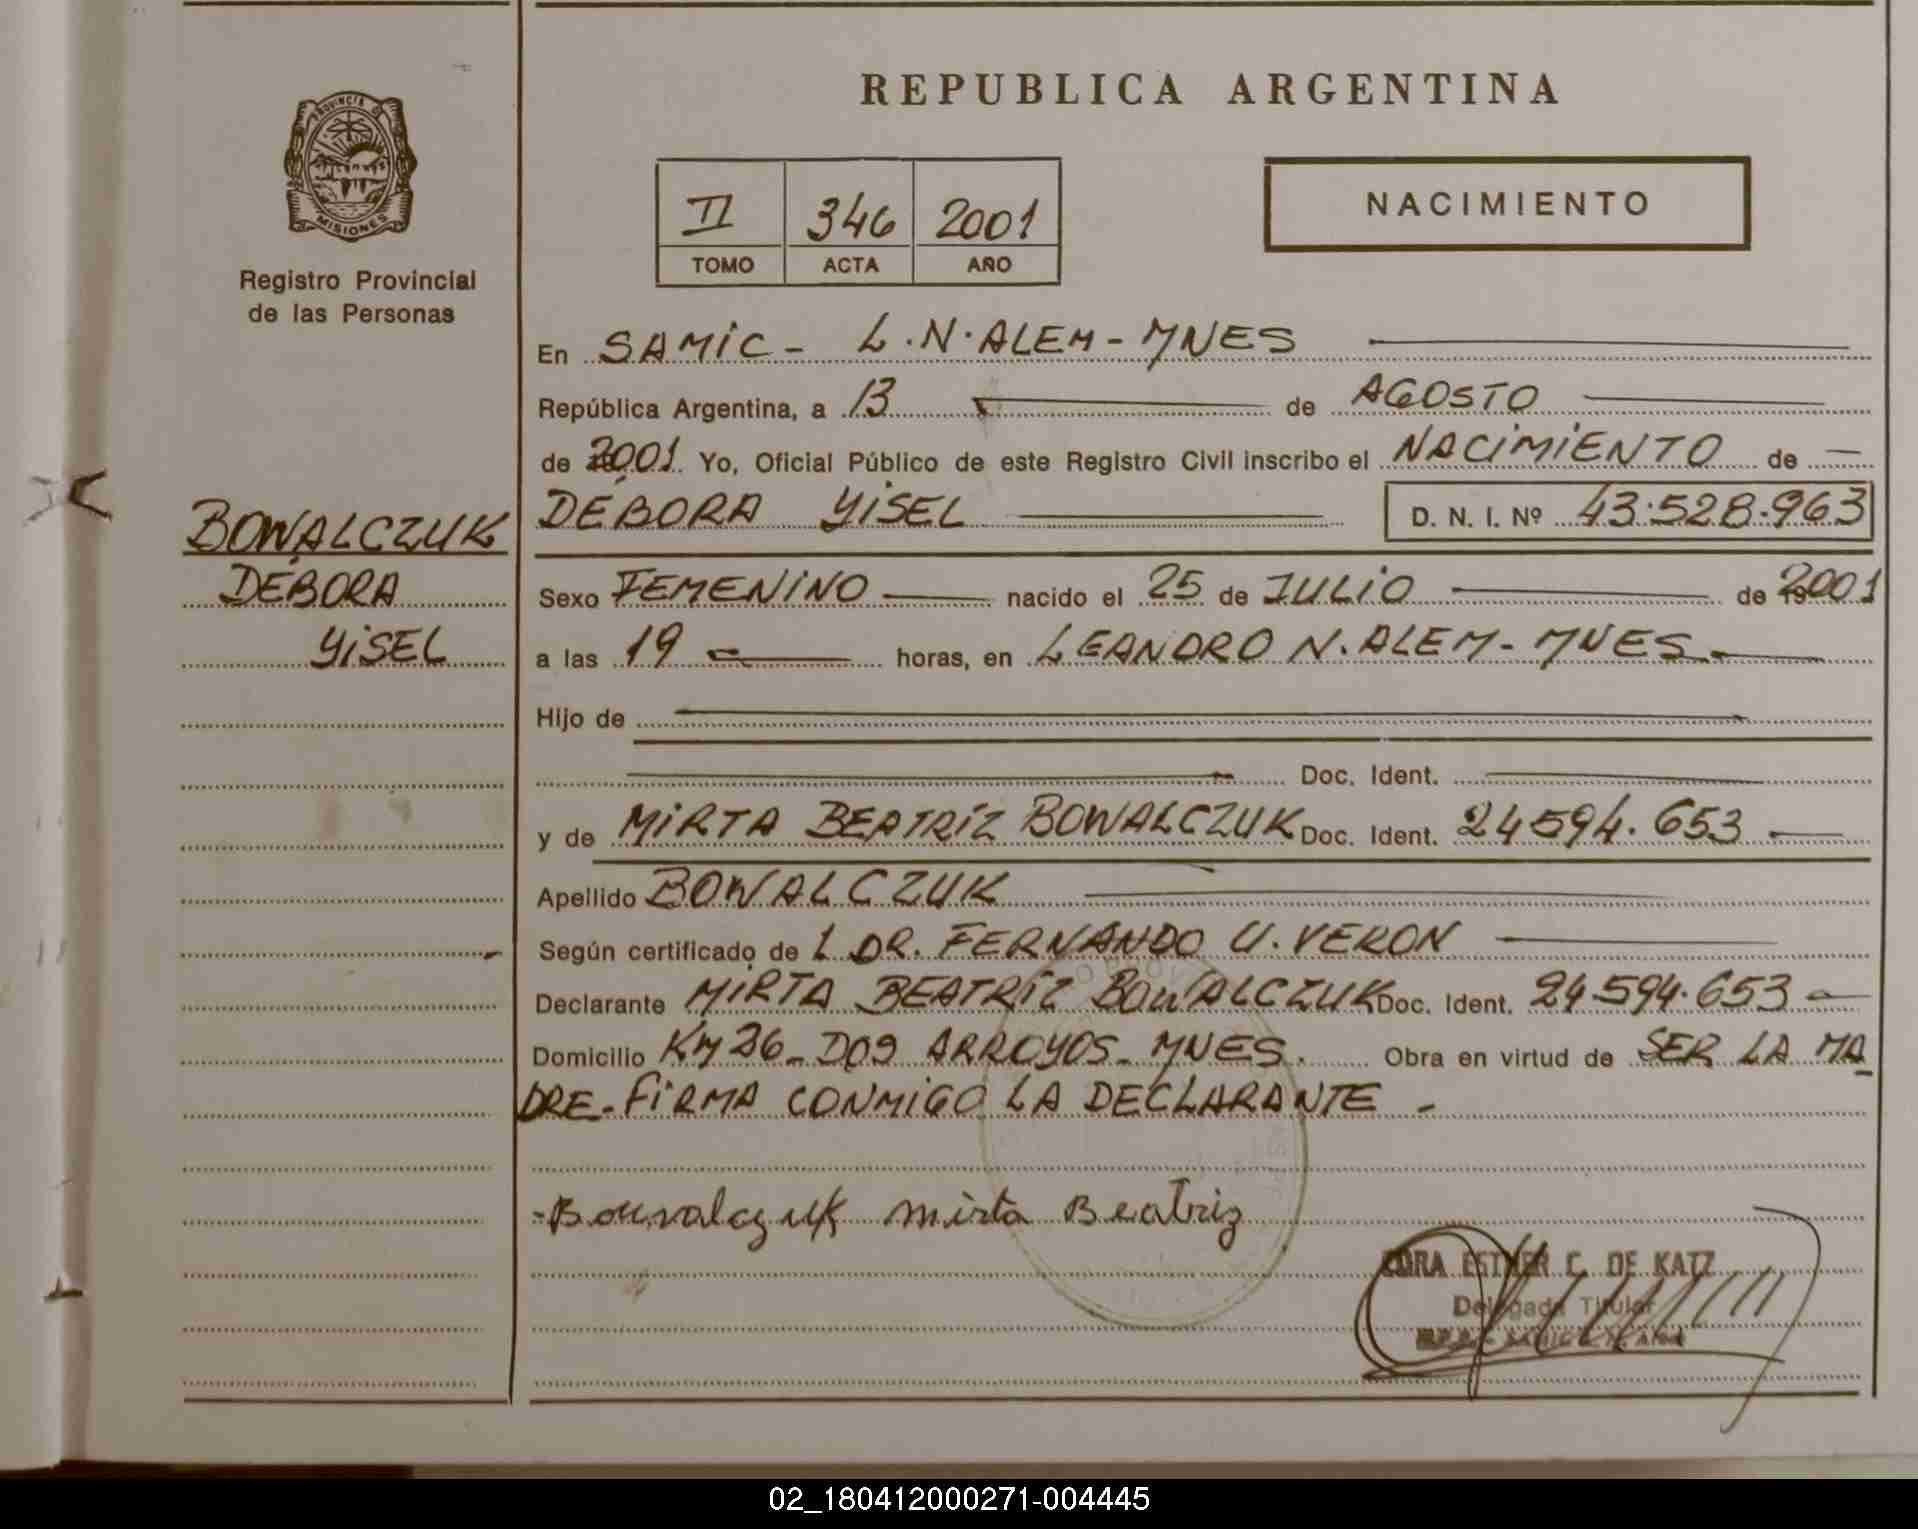 REPUBLICA ARGENTINA
PROVINCIA DE
MISIONES
Registro Provincial
de las Personas
II 346 2001
TOMO ACTA AÑO
NACIMIENTO
En SAMIC - L.N.ALEM - MNES
República Argentina, a 13 de AGOSTO
de 2001 Yo, Oficial Público de este Registro Civil inscribo el NACIMIENTO de
DÉBORA YISEL D. N. I. Nº 43.528.963
BOWALCZUK
DÉBORA
YISEL
Sexo FEMENINO nacido el 25 de JULIO de 2001
a las 19 horas, en LEANDRO N. ALEM - MNES.
Hijo de
Doc. Ident.
y de MIRTA BEATRÍZ BOWALCZUK Doc. Ident. 24594.653
Apellido BOWALCZUK
Según certificado de L DR. FERNANDO U. VERON
Declarante MIRTA BEATRÍZ BOWALCZUK Doc. Ident. 24.594.653
Domicilio KM 26 - DOS ARROYOS - MNES. Obra en virtud de SER LA MA
DRE - FIRMA CONMIGO LA DECLARANTE -
- Bouvalczuk mirta Beatriz
ESTHER C. DE KATZ
Delegada Titular
02_180412000271-004445